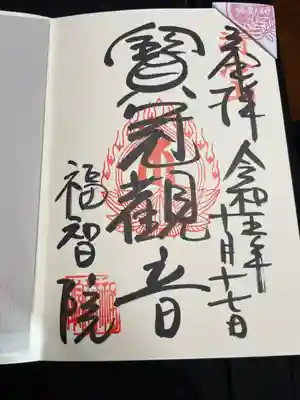 奉拝
令和五年
十月十七日
寳冠觀音
福智院